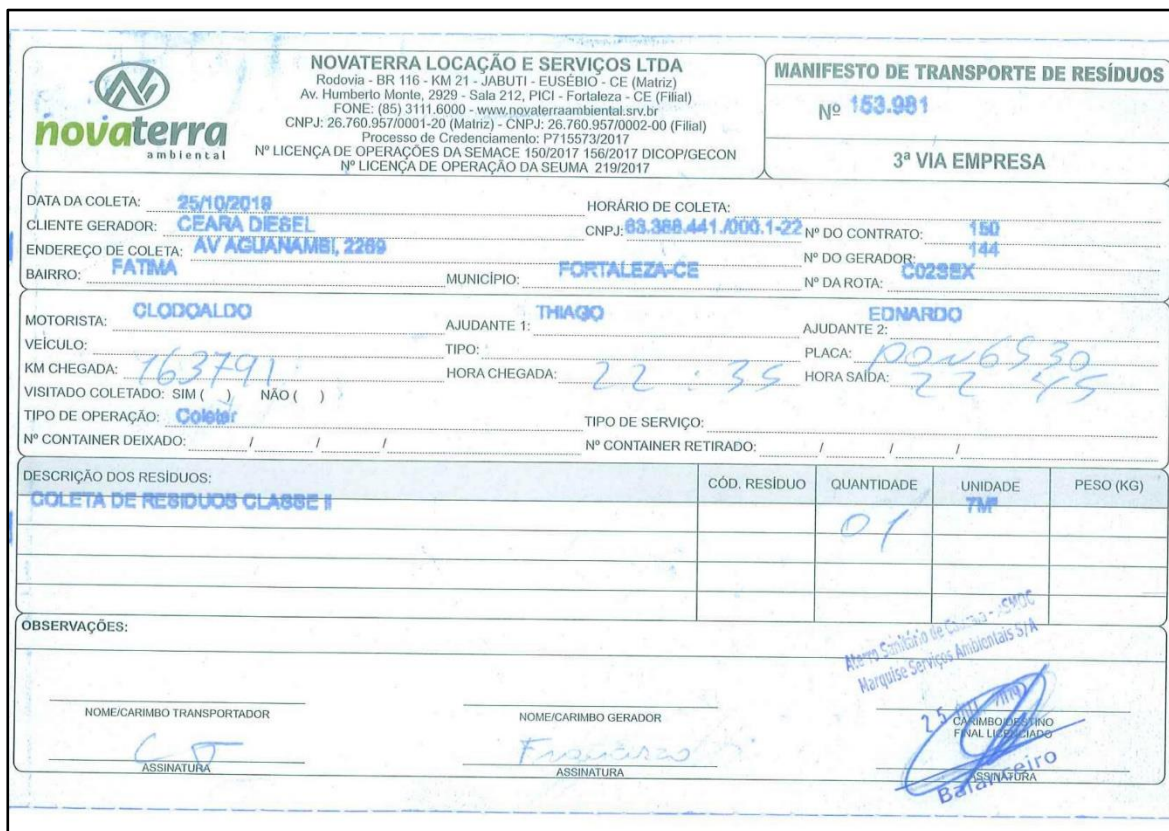 novaterra
ambiental
NOVATERRA LOCAÇÃO E SERVIÇOS LTDA
Rodovia - BR 116 - KM 21 - JABUTI - EUSÉBIO - CE (Matriz)
Av. Humberto Monte, 2929 - Sala 212, PICI - Fortaleza - CE (Filial)
FONE: (85) 3111.6000 - www.novaterraambiental.srv.br
CNPJ: 26.760.957/0001-20 (Matriz) - CNPJ: 26.760.957/0002-00 (Filial)
Processo de Credenciamento: P715573/2017
Nº LICENÇA DE OPERAÇÕES DA SEMACE 150/2017 156/2017 DICOP/GECON
Nº LICENÇA DE OPERAÇÃO DA SEUMA 219/2017
MANIFESTO DE TRANSPORTE DE RESÍDUOS
Nº 153.981
3ª VIA EMPRESA
DATA DA COLETA: 25/10/2019 HORÁRIO DE COLETA:
CLIENTE GERADOR: CEARA DIESEL CNPJ: 63.388.441./000.1-22 Nº DO CONTRATO: 150
ENDEREÇO DE COLETA: AV AGUANAMBI, 2269 Nº DO GERADOR: 144
BAIRRO: FATIMA MUNICÍPIO: FORTALEZA-CE Nº DA ROTA: C02SEX
MOTORISTA: CLODOALDO AJUDANTE 1: THIAGO AJUDANTE 2: EDNARDO
VEÍCULO: TIPO: PLACA: PON6530
KM CHEGADA: 163791 HORA CHEGADA: 22:35 HORA SAÍDA: 22 45
VISITADO COLETADO: SIM ( ) NÃO ( )
TIPO DE OPERAÇÃO: Coletar TIPO DE SERVIÇO:
Nº CONTAINER DEIXADO: / / / Nº CONTAINER RETIRADO: / / /
DESCRIÇÃO DOS RESÍDUOS: CÓD. RESÍDUO QUANTIDADE UNIDADE PESO (KG)
COLETA DE RESIDUOS CLASSE II 01 7M³
OBSERVAÇÕES:
Aterro Sanitário de Caucaia - ASMOC
Marquise Serviços Ambientais S/A
NOME/CARIMBO TRANSPORTADOR NOME/CARIMBO GERADOR CARIMBO/DESTINO
FINAL LICENCIADO
Francisco
ASSINATURA ASSINATURA ASSINATURA
Balanceiro